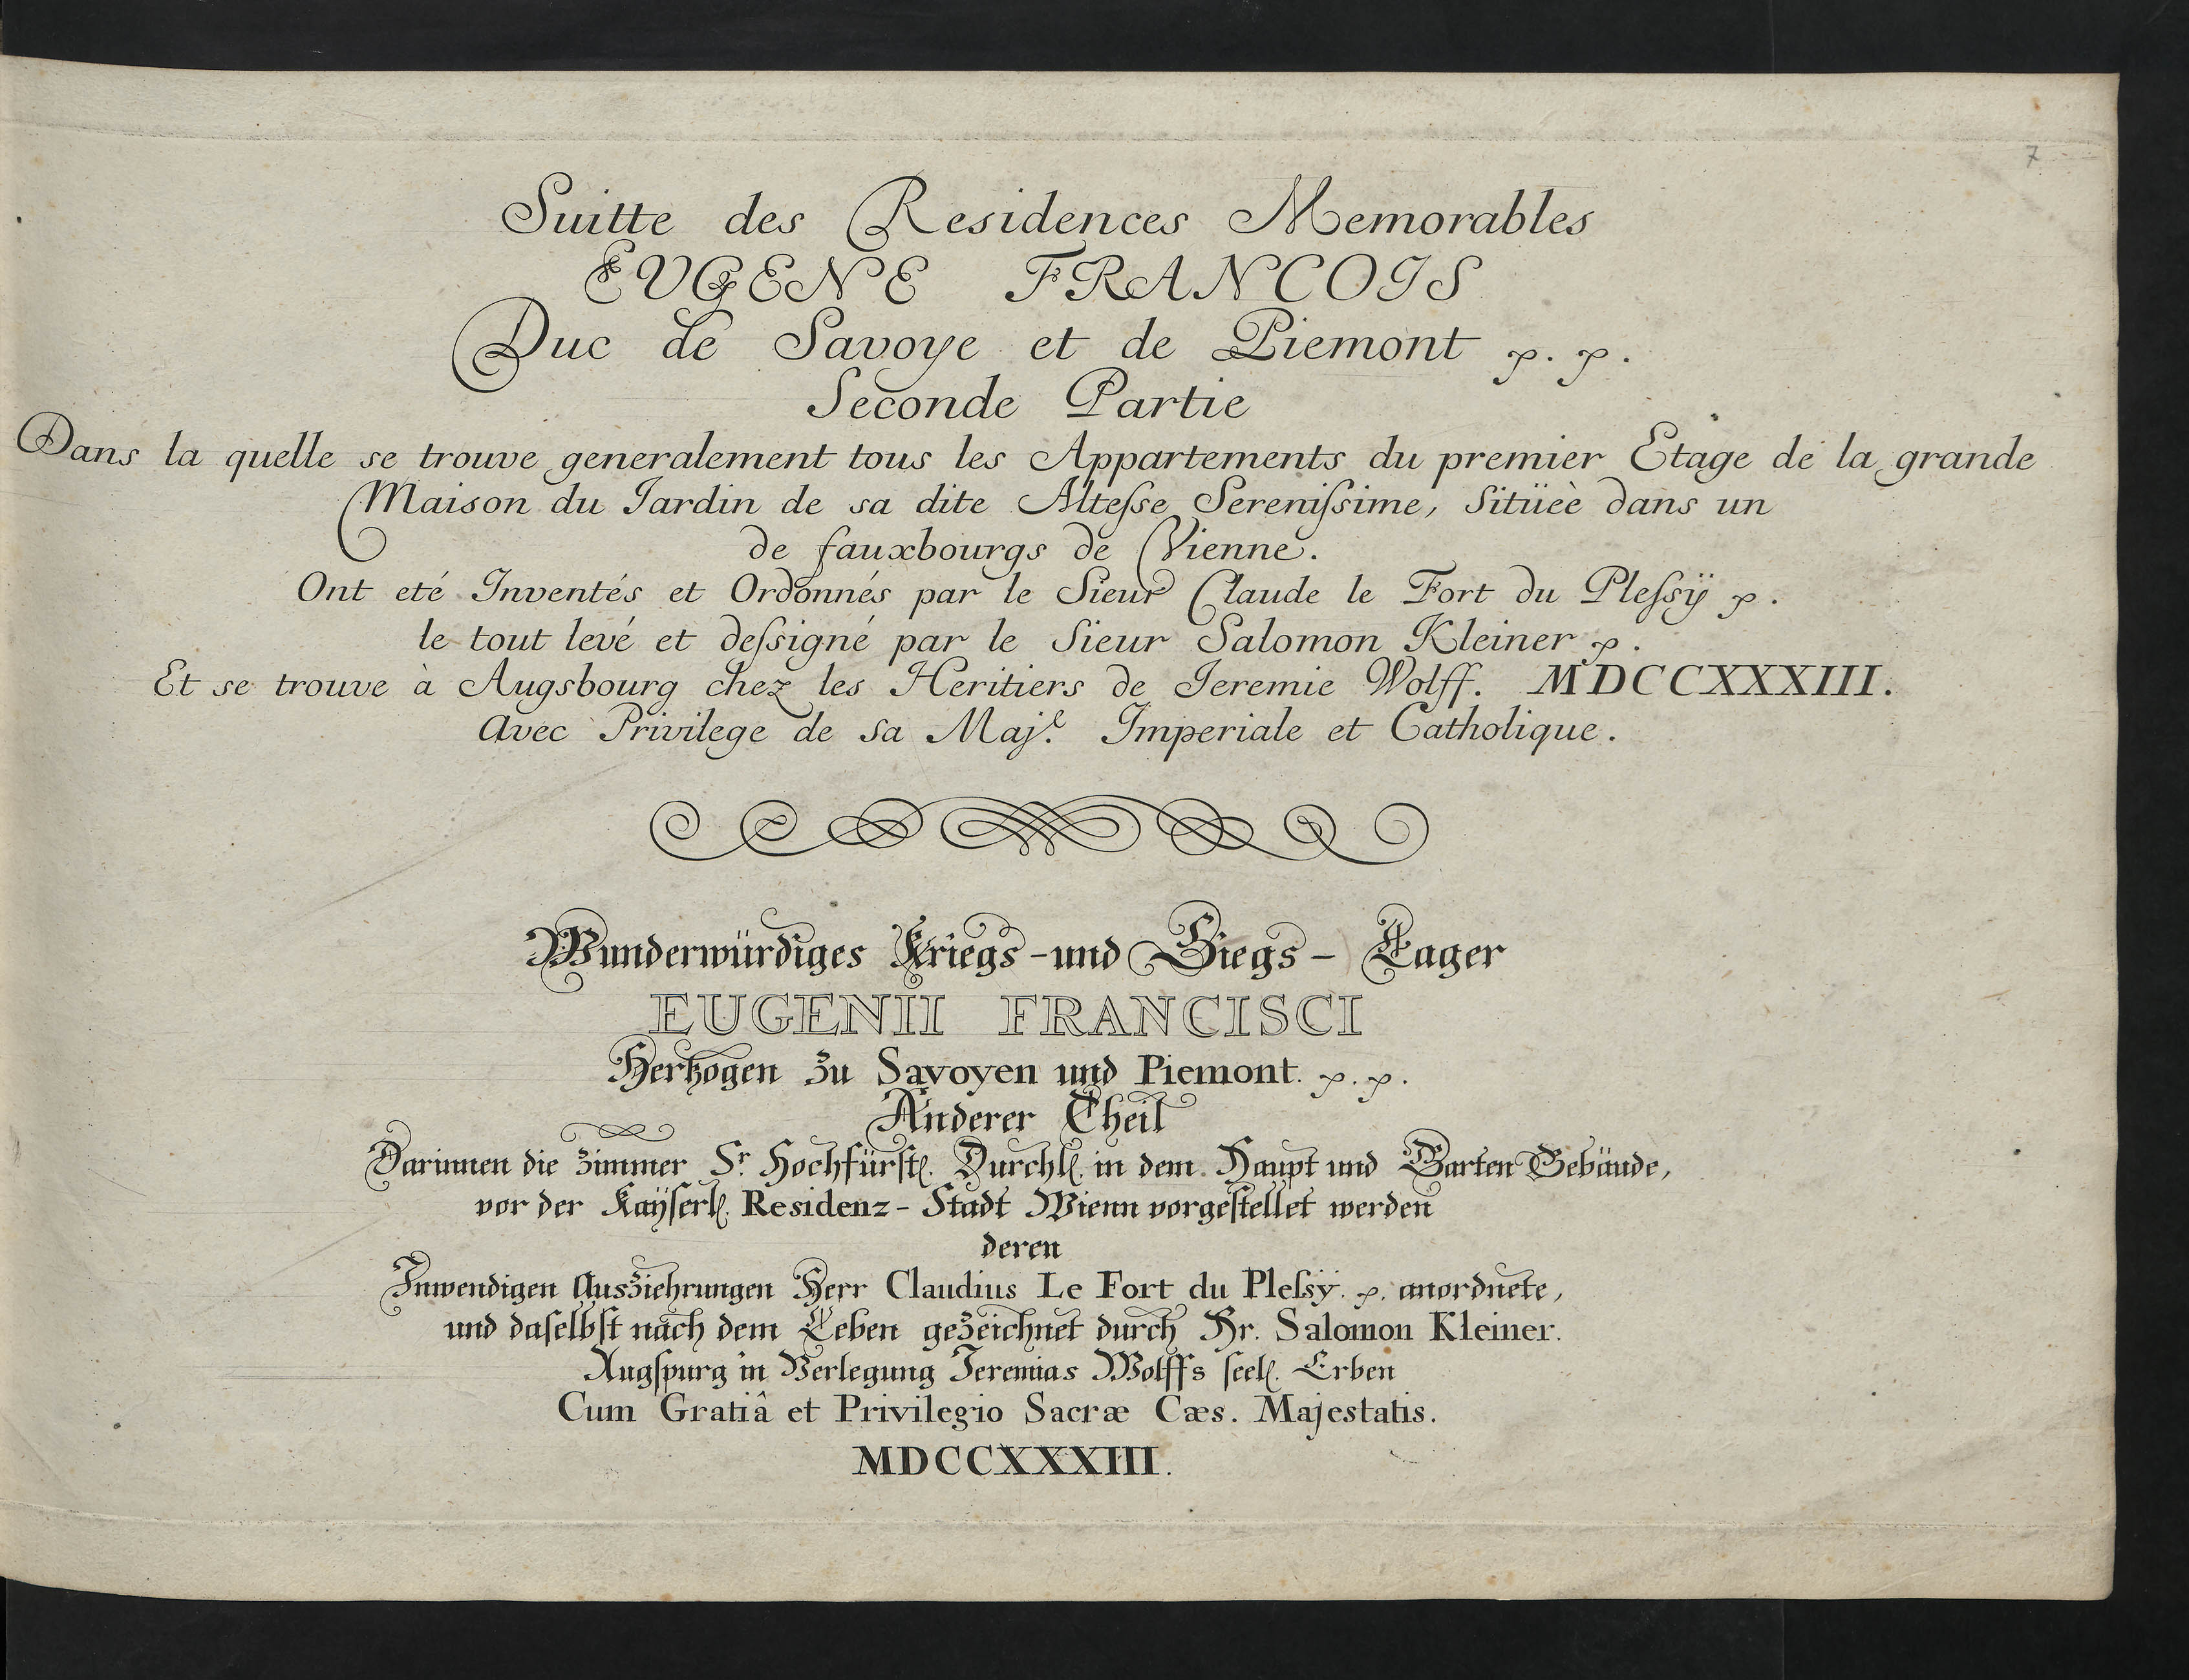 7
Suitte des Residences Memorables
EUGENE FRANCOIS
Duc de Savoye et de Piemont p. p.
Seconde Partie
Dans la quelle se trouve generalement tous les Appartements du premier Etage de la grande
Maison du Jardin de sa dite Alteſse Sereniſsime, Sitüeè dans un
de fauxbourgs de Vienne.
Ont eté Inventés et Ordonnés par le Sieur Claude le Fort du Pleſsÿ p.
le tout levé et deſsigné par le Sieur Salomon Kleiner p.
Et se trouve à Augsbourg chez les Heritiers de Jeremie Wolff. MDCCXXXIII.
avec Privilege de sa Maj.e Imperiale et Catholique.
Wunderwürdiges Kriegs-und Siegs-Lager
EUGENII FRANCISCI
Hertzogen zu Savoyen und Piemont. p. p.
Anderer Theil
Darinnen die Zimmer Sr. Hochfürstl. Durchl. in dem Haupt und Garten Gebäude,
vor der Kaÿſerl. Residenz-Stadt Wienn vorgeſtellet werden
deren
Inwendigen Ausziehrungen Herr Claudius Le Fort du Pleſsÿ. p. anordnete,
und daſelbſt nach dem Leben gezeichnet durch Hr. Salomon Kleiner.
Augſpurg in Verlegung Jeremias Wolffs ſeel. Erben
Cum Gratiâ et Privilegio Sacræ Cæs. Majestatis.
MDCCXXXIII.